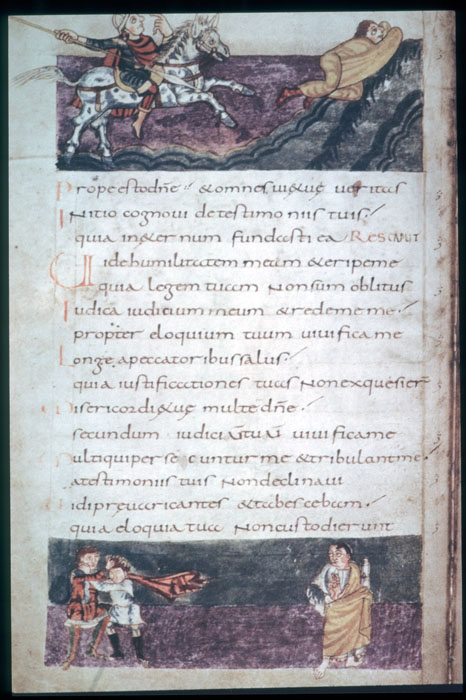 Prope esto dñe et omnes uiae tuae ueritas
Initio cognoui de testimoniis tuis
quia in aeternum fundasti ea Res capit
Uide humilitatem meam et eripe me
quia legem tuam non sum oblitus
Iudica iudicium meum et redeme me
propter eloquium tuum uiuifica me
Longe a peccatoribus salus
quia iustificationes tuas non exquesier
Misericordiae tuae multe dñe
secundum iudiciū tuū uiuifica me
Multi qui persecuntur me et tribulant me
a testimoniis tuis non declinaui
Uidi preuaricantes et tabescebam
quia eloquia tua non custodierunt